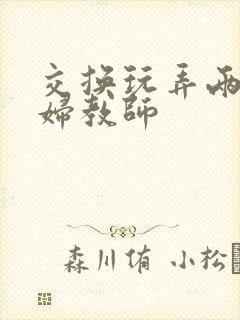 交换玩弄兩
婦教師
森川侑 小松